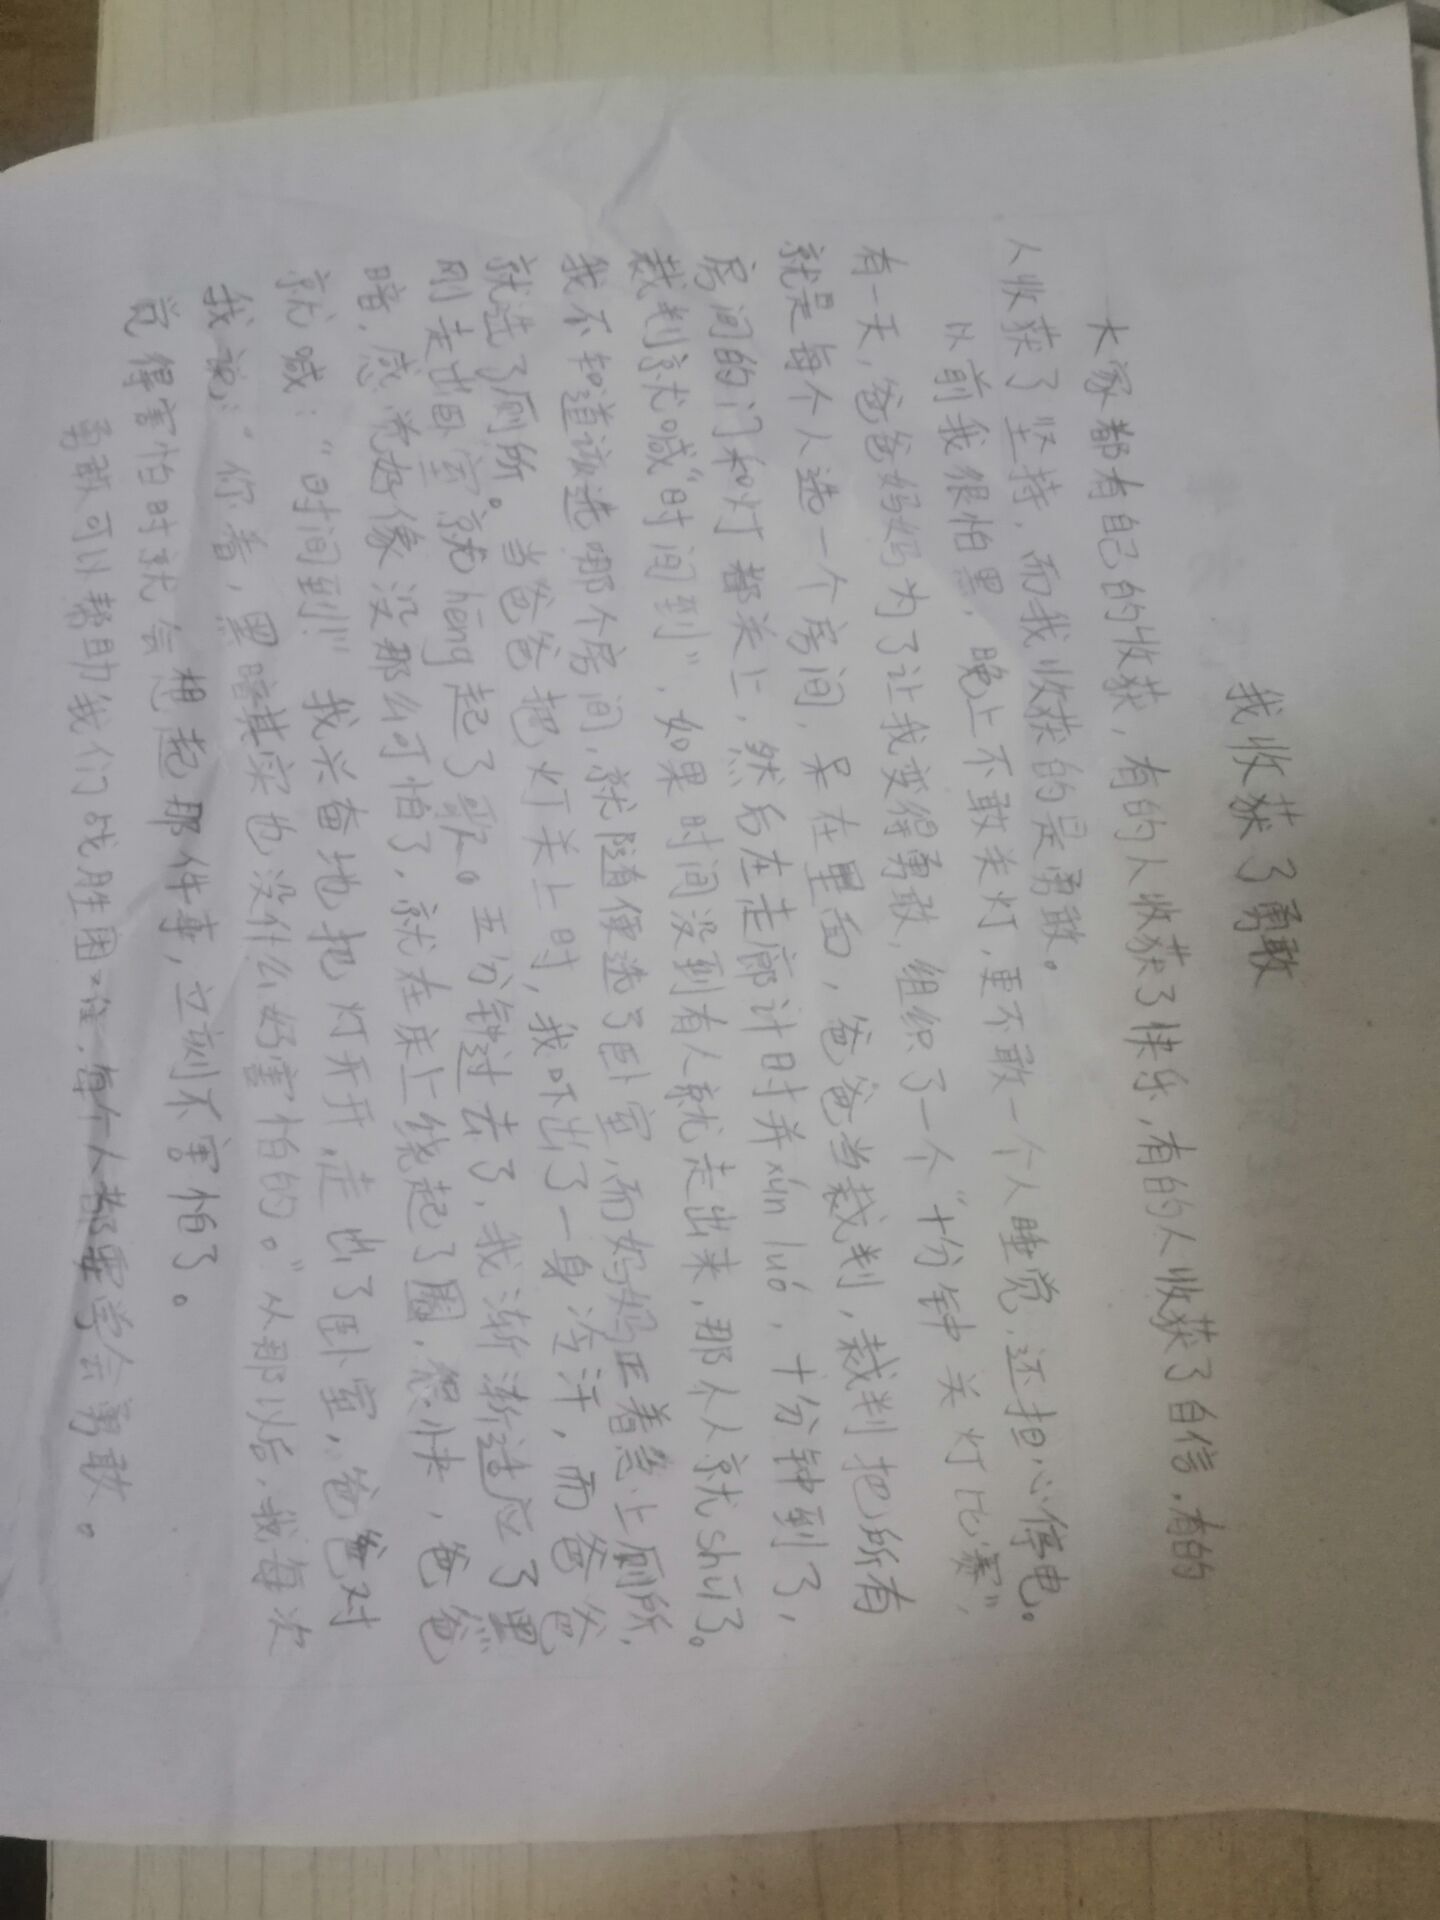 我收获了勇敢
大家都有自己的收获，有的人收获了快乐，有的人收获了自信，有的
人收获了坚持，而我收获的是勇敢。
以前我很怕黑，晚上不敢关灯，更不敢一个人睡觉，还担心停电。
有一天，爸爸妈妈为了让我变得勇敢，组织了一个“十分钟关灯比赛”，
就是每个人选一个房间，呆在里面，爸爸当裁判，裁判把所有
房间的门和灯都关上，然后在走廊计时并xún luó，十分钟到了，
裁判就喊“时间到”，如果时间没到有人就走出来，那个人就shū了。
我不知道该选哪个房间，就随便选了卧室，而妈妈正着急上厕所，
就选了厕所。当爸爸把灯关上时，我吓出了一身冷汗，而爸爸
刚走出卧室就hēng起了歌。五分钟过去了，我渐渐适应了黑
暗，感觉好像没那么可怕了，就在床上绕起了圈，很快，爸爸
就喊：“时间到！”我兴奋地把灯打开，走出了卧室，爸爸对
我说：“你看，黑暗其实也没什么好害怕的。”从那以后，我每次
觉得害怕时就会想起那件事，立刻不害怕了。
勇敢可以帮助我们战胜困难，每个人都要学会勇敢。